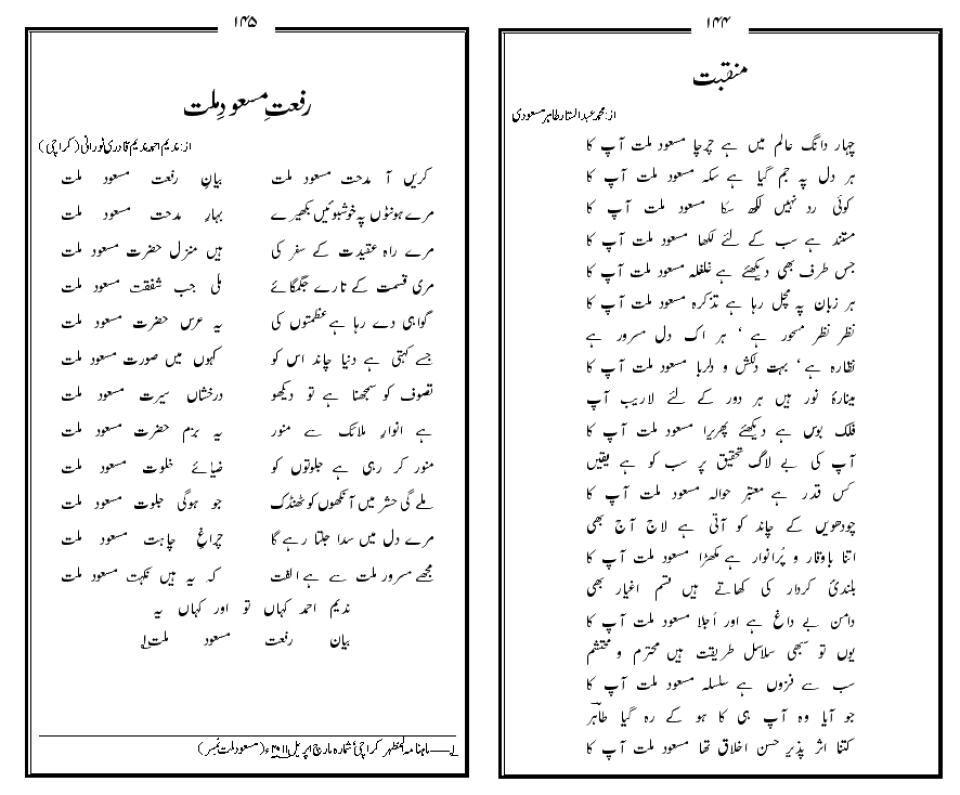 ۱۴۴
منقبت
از: محمد عبدالستار طاہر مسعودی
چہار دانگ عالم میں ہے چرچا مسعود ملت آپ کا
ہر دل پہ جم گیا ہے سکہ مسعود ملت آپ کا
کوئی رد نہیں لکھ سکا مسعود ملت آپ کا
مستند ہے سب کے لئے لکھا مسعود ملت آپ کا
جس طرف بھی دیکھئے ہے غلغلہ مسعود ملت آپ کا
ہر زبان پہ مچل رہا ہے تذکرہ مسعود ملت آپ کا
نظر نظر مسحور ہے ‘ ہر اک دل مسرور ہے
نظارہ ہے‘ بہت دلکش و دلربا مسعود ملت آپ کا
مینارۂ نور ہیں ہر دور کے لئے لاریب آپ
فلک بوس ہے دیکھئے پھریرا مسعود ملت آپ کا
آپ کی بے لاگ تحقیق پر سب کو ہے یقیں
کس قدر ہے معتبر حوالہ مسعود ملت آپ کا
چودھویں کے چاند کو آتی ہے لاج آج بھی
اتنا باوقار و پُرانوار ہے مکھڑا مسعود ملت آپ کا
بلندیٔ کردار کی کھاتے ہیں قسم اغیار بھی
دامن بے داغ ہے اور اُجلا مسعود ملت آپ کا
یوں تو سبھی سلاسل طریقت ہیں محترم و محتشم
سب سے فزوں ہے سلسلہ مسعود ملت آپ کا
جو آیا وہ آپ ہی کا ہو کے رہ گیا طاہرؔ
کتنا اثر پذیر حسن اخلاق تھا مسعود ملت آپ کا
۱۴۵
رفعتِ مسعودِ ملت
از: ندیم احمد ندیم قادری نورانی (کراچی)
کریں آ مدحت مسعود ملت بیانِ رفعت مسعود ملت
مرے ہونٹوں پہ خوشبوئیں بکھیرے بہارِ مدحت مسعود ملت
مرے راہ عقیدت کے سفر کی ہیں منزل حضرت مسعود ملت
مری قسمت کے تارے جگمگائے ملی جب شفقت مسعود ملت
گواہی دے رہا ہے عظمتوں کی یہ عرس حضرت مسعود ملت
جسے کہتی ہے دنیا چاند اس کو کہوں میں صورت مسعود ملت
تصوف کو سمجھنا ہے تو دیکھو درخشاں سیرت مسعود ملت
ہے انوارِ ملائک سے منور یہ بزم حضرت مسعود ملت
منور کر رہی ہے جلوتوں کو ضیائے خلوت مسعود ملت
ملے گی حشر میں آنکھوں کو ٹھنڈک جو ہوگی جلوت مسعود ملت
مرے دل میں سدا جلتا رہے گا چراغِ چاہت مسعود ملت
مجھے مسرور ملت سے ہے الفت کہ یہ ہیں نکہت مسعود ملت
ندیم احمد کہاں تو اور کہاں یہ
بیان رفعت مسعود ملت۱
۱۔ ماہنامہ المظہر کراچی‘ شمارہ مارچ اپریل ۲۰۱۱ء (مسعود ملت نمبر)